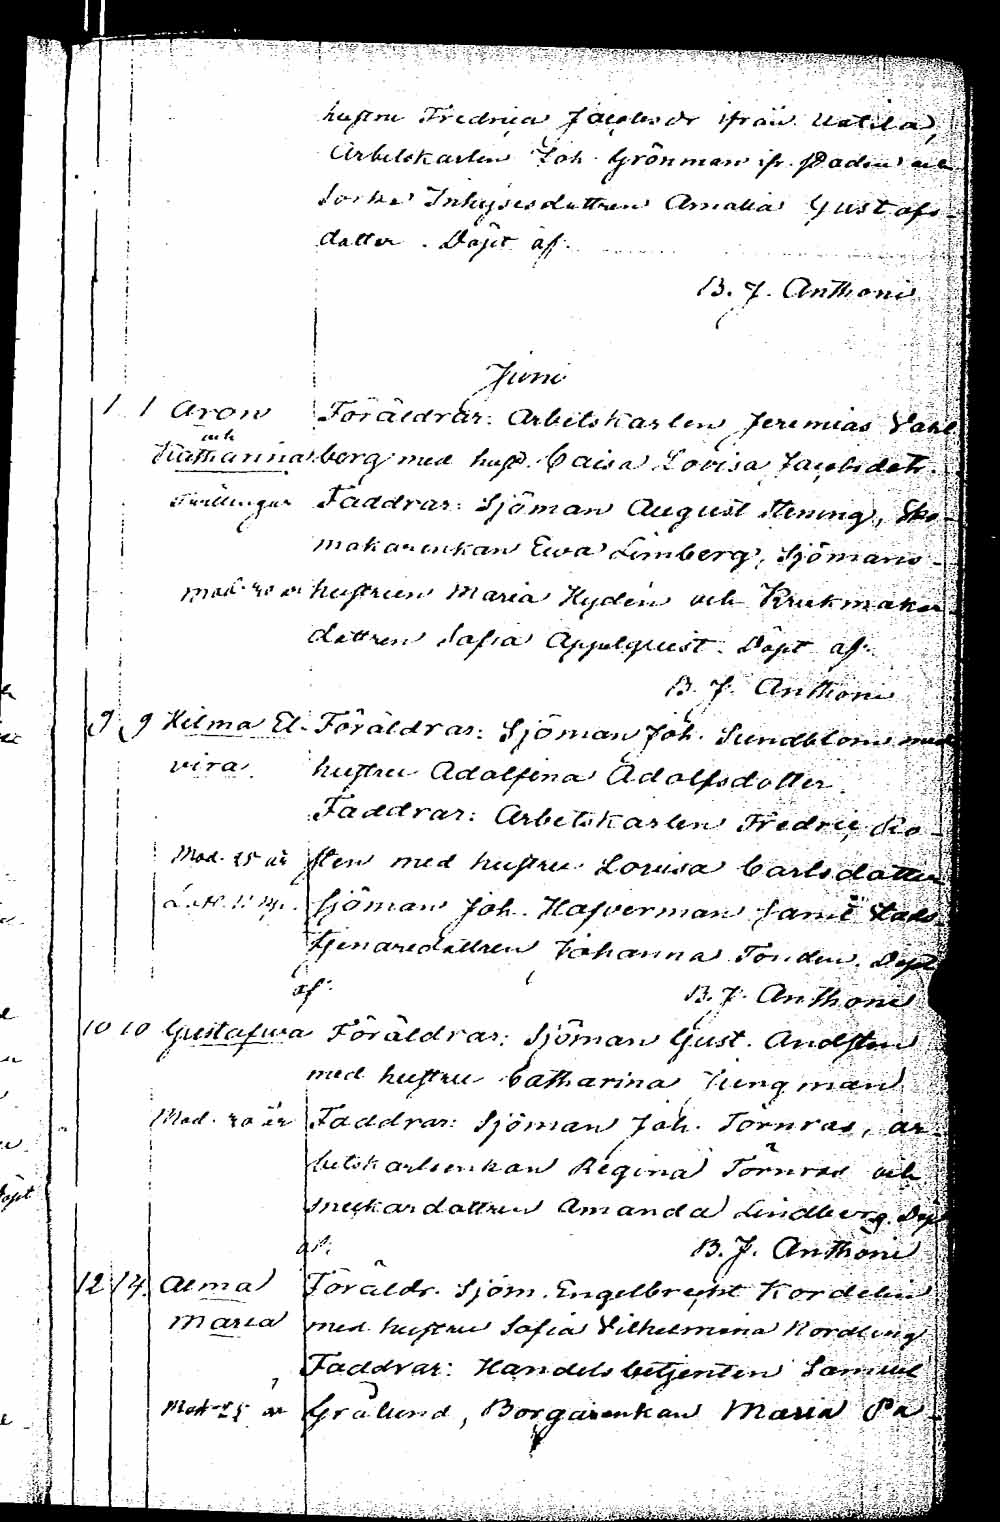 hustru Fredrica Jacobsdr ifrån Uotila,
Arbetskarlen Joh. Grönman ifr. och
Inhysesdottren Amalia Gustafs-
dotter. Döpt af.
B. J. Anthoni
Juni
1 1 Aron Föräldrar: Arbetskarlen Jeremias Vahl
och
Katharina berg med hust. Caisa Lovisa Jacobsdotr.
Tvillingar Faddrar: Sjöman August Stening, Sko-
makarenkan Ewa Limberg, Sjömans-
Mod. 40 år hustrun Maria Hydén och Krukmakar-
dottren Sofia Appelquist. Döpt af.
B. J. Anthoni
9 9 Hilma El- Föräldrar: Sjöman Joh. Sundblom med
vira. hustru Adolfina Adolfsdotter.
Faddrar: Arbetskarlen Fredric Ro-
Mod. 25 år sten med hustru Lovisa Carlsdotter
Sjöman Joh. Hafverman samt Stads-
tjenaredottren Johanna Tonden. Döpt
af. B. J. Anthoni
10 10 Gustafwa Föräldrar: Sjöman Gust. Andsten
med hustru Catharina Jungman
Mod. 20 år Faddrar: Sjöman Joh. Törnros, ar-
betskarlsenkan Regina Törnros och
snickardottren Amanda Lindberg. Döpt
af. B. J. Anthoni
12 14. Alma Föräldr. Sjöm. Engelbrecht Kordelin
Maria med hustru Sofia Vilhelmina Nordling
Faddrar: Handelsbetjenten Samuel
Mod. 25 år Grålund, Borgarenkan Maria Pa-